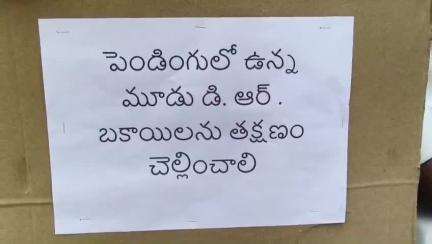 పెండింగులో ఉన్న
మూడు డి. ఆర్ .
బకాయిలను తక్షణం
చెల్లించాలి